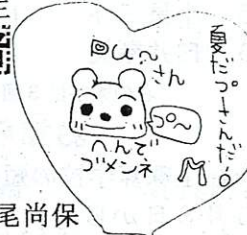 夏だプーさんだー。
Pu〜
さん
プ〜
へんで
ゴメンネ
M
尾尚保